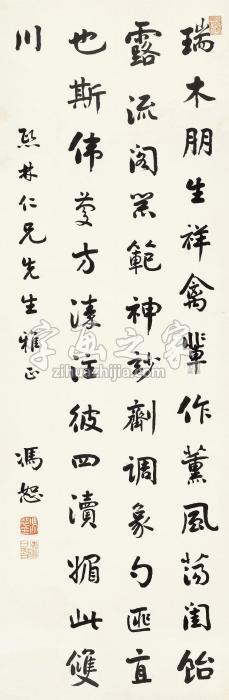 瑞木朋生祥禽輩作薰風蕩閨飴
露流閣器範神玅劑調象勺匪直
也斯偉慶方溱注彼四瀆媚此雙
川
熙林仁兄先生雅正 馮恕
字画之家
zihuazhijia.com